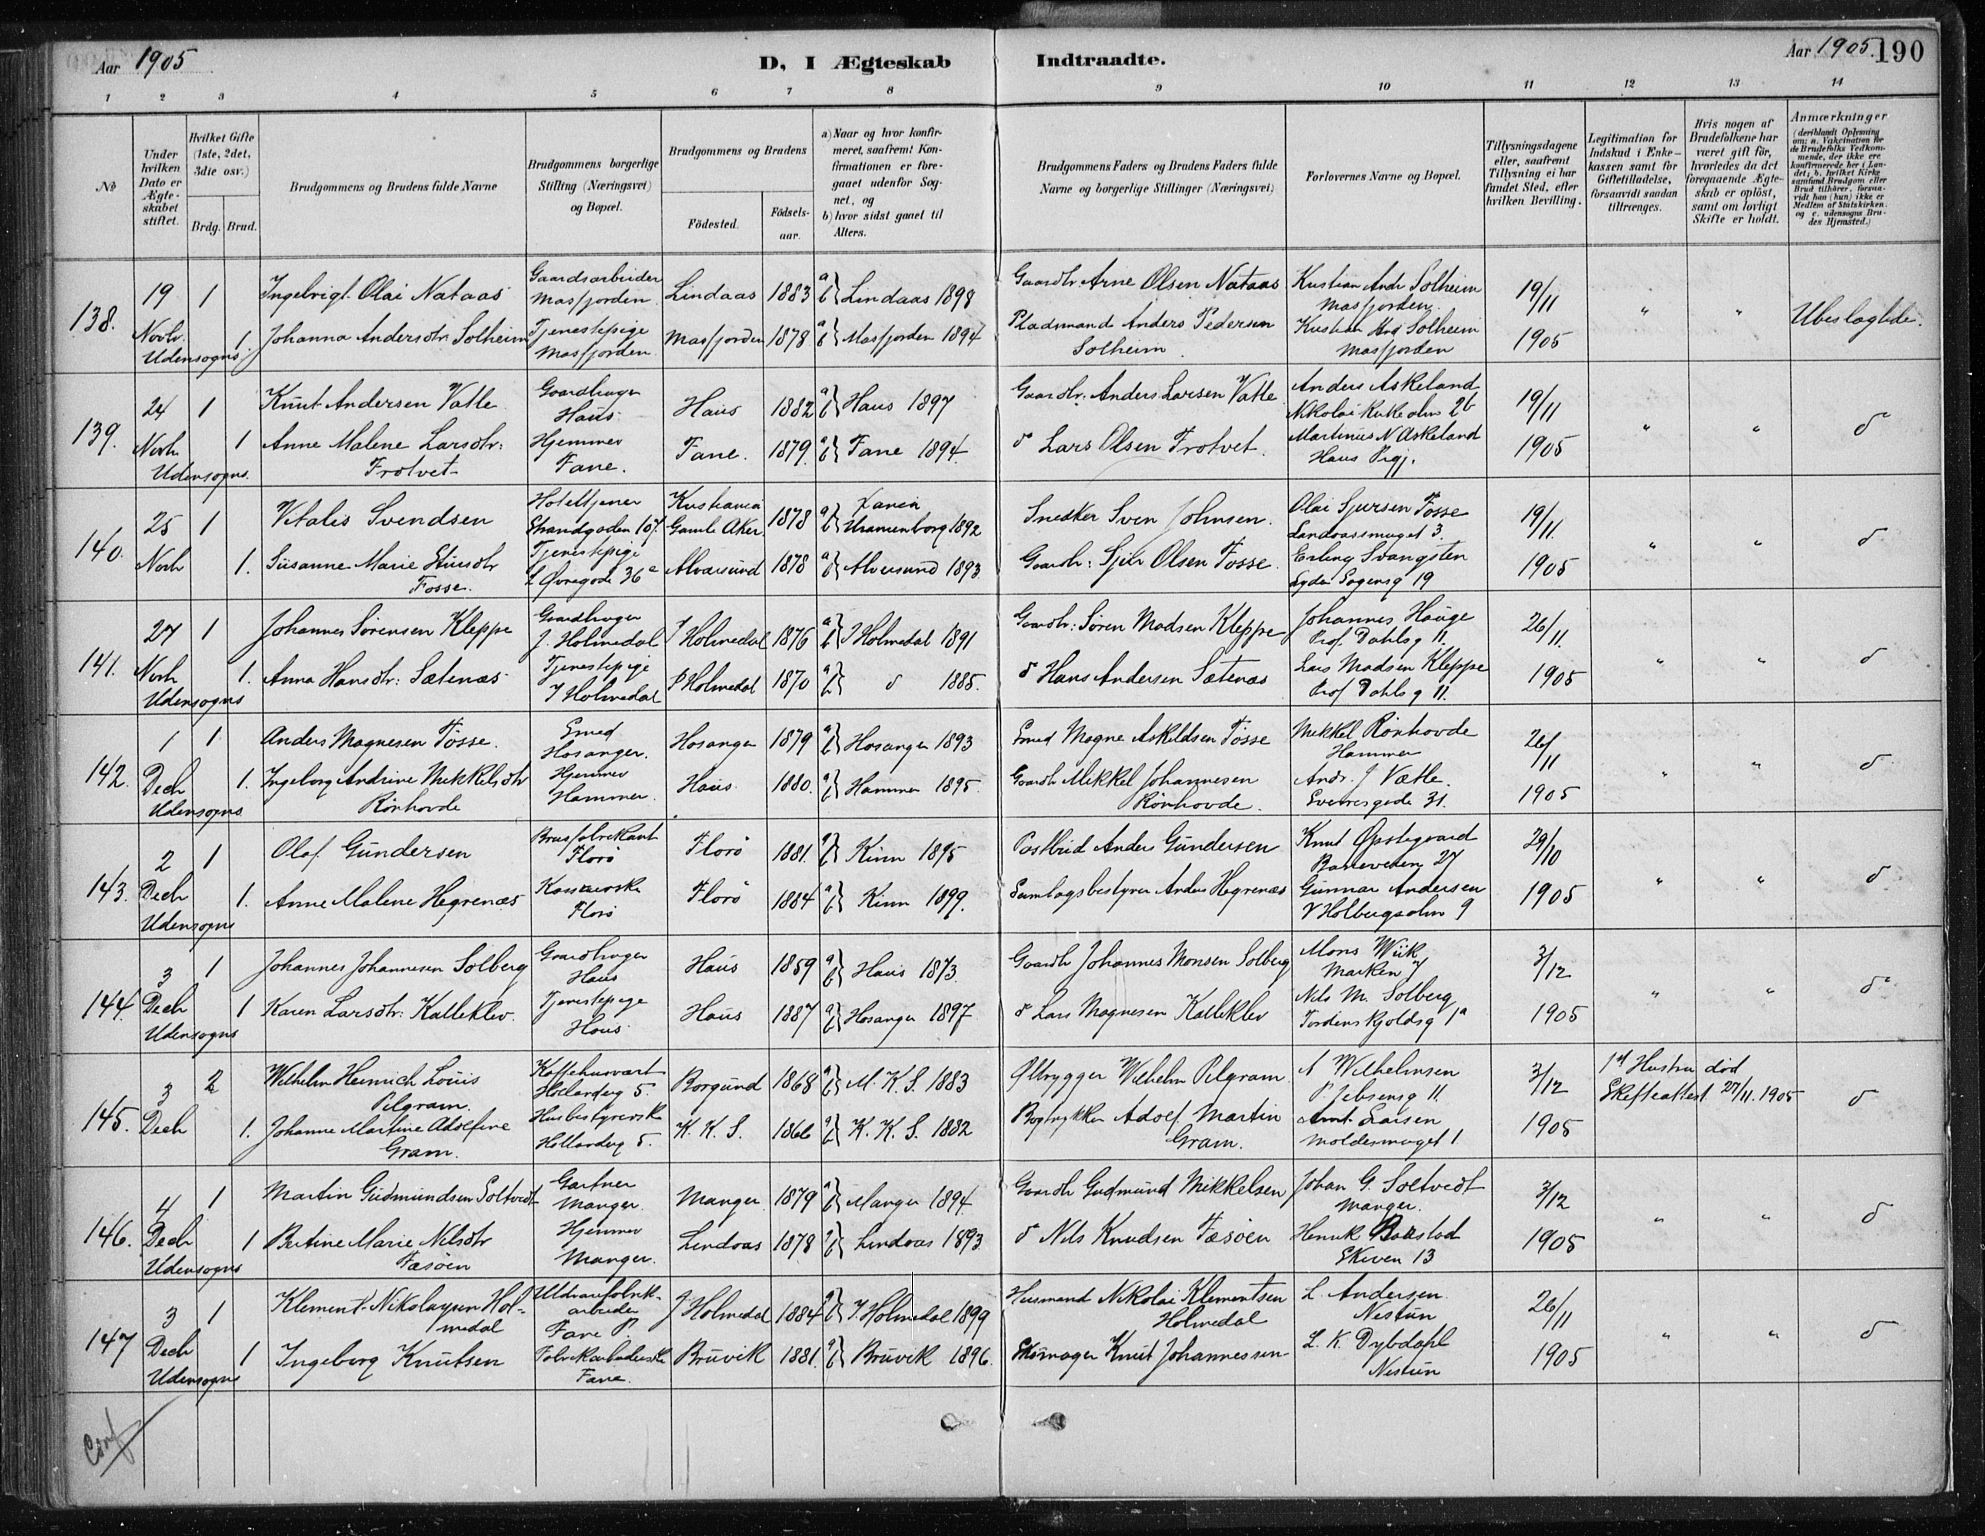 Aar 1905
D, I Ægteskab Indtraadte.
Aar 1905. 190
1 2 3 4 5 6 7 8 9 10 11 12 13 14
No
Under hvilken Dato er Ægteskabet stiftet.
Hvilket Gifte (1ste, 2det, 3die osv.)
Brdg. Brud.
Brudgommens og Brudens fulde Navne
Brudgommens borgerlige Stilling (Næringsvei) og Bopæl.
Brudgommens og Brudens
Fødested.
Fødselsaar.
a) Naar og hvor konfirmeret, saafremt Konfirmationen er foregaaet udenfor Sognet, og
b) hvor sidst gaaet til Alters.
Brudgommens Faders og Brudens Faders fulde Navne og borgerlige Stillinger (Næringsvei)
Forlovernes Navne og Bopæl.
Tillysningsdagene eller, saafremt Tillysning ei har fundet Sted, efter hvilken Bevilling.
Legitimation for Indskud i Enkekassen samt for Giftetilladelse, forsaavidt saadan tiltrænges.
Hvis nogen af Brudefolkene har været gift før, hvorledes da det foregaaende Ægteskab er opløst, samt om lovligt Skifte er holdt.
Anmærkninger
(deriblandt Oplysning om: a. Vakcination for de Brudefolks Vedkommende, der ikke ere konfirmerede her i Landet; b. hvilket Kirkesamfund Brudgom eller Brud tilhører, forsaavidt han (hun) ikke er Medlem af Statskirken. og c. udensogns Brudes Hjemsted.)
138. 19 Novbr. Udensogns
1 Ingebrigt Olai Nataas Gaardsarbeider Masfjorden. Lindaas 1883 a b Lindaas 1898 Gaardbr. Arne Olsen Nataas Kristian Andr Solheim Masfjorden. 19/11
1. Johanna Andersdtr. Solheim Tjenestepige Masfjorden Masfjorden 1878 a b Masfjorden 1894 Pladsmand Anders Pedersen Solheim. Kristian And Solheim Masfjorden 1905 " " Ubeslægtede.
139. 24 Novbr Udensogns.
1 Knut Andersen Vatle Gaardbruger Haus Haus 1882 a b Haus 1897 Gaardbr. Anders Larsen Vatle Anders Askeland 19/11
1 Anne Malene Larsdtr: Frotvet Hjemmev Fane. Fane. 1879. a b Fane 1894. do Lars Olsen Frotvet. Martinus N Askeland Haus Prgj. 1905 " " do
140. 25 Novbr
1 Vitalis Svendsen Hoteltjener Strandgaden 107. Kristiania Gamle Aker 1878 a b Uranienborg 1892 Snedker Sven Johnsen. Olai Sjursen Fosse 3. 19/11.
1. Susanne Marie Fosse. Tjenestepige Øvregade 36a Alversund 1878 a b Alversund 1893. Gaardbr: Sjur Olsen Fosse. Erling Svangsten 19 1905 " " do
141. 27 Novbr Udensogns
1 Johannes Sørensen Kleppe Gaardbruger J. Holmedal J Holmedal 1876 a b J Holmedal 1891 Gaardbr: Søren Madsen Kleppe Johannes Hauge Prof. Dahlsg 11. 26/11.
1. Anna Hansdtr: Sætenæs Tjenestepige J Holmedal J Holmedal 1870 a b do 1885. do Hans Andersen Sætenæs Lars Madsen Kleppe Prof Dahlsg 11. 1905 " " do
142. 1 Decb Udensogns
1 Anders Magnesen Fosse. Smed Hosanger. Hosanger 1879 a b Hosanger 1893 Smed Magne Askildsen Fosse Mikkel Rønhovde Hammer 26/11
1. Ingeborg Andrine Mikkelsdtr Rønhovde Hjemmev Hammer. Haus 1880. a b Hammer 1895. Gaardbr Mikkel Johannesen Rønhovde. Andr. J Vatle. Sverresgade 31. 1905 " " do
143. 2 Decb Udensogns
1 Olaf Gundersen Brusfabrikant Florø Florø 1881. a b Kinn 1895 Postbud Anders Gundersen Knut Opstegaard 27 29/10
1. Anne Malene Hegrenæs Florø Florø 1884 a b Kinn 1899. Samlagsbestyrer Anders Hegrenæs Gunnar Andersen V Holbergsalm 9 1905 " " do
144. 3 Decb Udensogns
1 Johannes Johannesen Solberg Gaardbruger Haus Haus 1859 a b Haus 1873. Gaardbr Johannes Monsen Solberg Mons Wiik Marken 7 3/12
1 Karen Larsdtr: Kalleklev. Tjenestepige Haus Haus 1887 a b Hosanger 1897. do Lars Magnesen Kalleklev Nils M. Solberg Tordenskjoldsg 1a 1905 " " do
145. 3 Decb
2 Wilhelm Heinrich Louis Pilgram. Kaffehusvært Hollenderg 5. Borgund 1868 a b M. K. S. 1883 Ølbrygger Wilhelm Pilgram. A Wilhelmsen P Jebsensg 11. 3/12 1st Hustru død Skifteattest 27/11. 1905
1. Johanne Martine Adolfine Gram. Husbestyrerske Hollenderg 5. K. K. S. 1866 a b K. K. S. 1882 Bogtrykker Adolf Martin Gram. Larsen Moldesmuget 1. 1905 do
146. 4 Decb Udensogns
1 Martin Gudmundsen Soltvedt Gartner Manger. Manger 1879 a b Manger 1894. Gaardbr Gudmund Mikkelsen Johan G. Soltvedt Manger. 3/12
1 Bertine Marie Nilsdtr Fæsøen Hjemmev Manger. Lindaas 1878 a b Lindaas 1893. do Nils Knudsen Fæsøen Henrik Skiven 13 1905 " " do
147 3 Decb Udensogns
1 Klement Nikolaysen Holmedal Uldvarefabrikarbeider Fane P. J Holmedal 1884 a b J. Holmedal 1899 Husmand Nikolai Klementsen Holmedal L. Andersen. Nestun 26/11
1 Ingeborg Knutsen Fabrikarbeiderske Fane. Bruvik 1881. a b Bruvik 1896. Skomager Knut Johannessen L. K. Dybdahl Nestun 1905 " " do
Conf